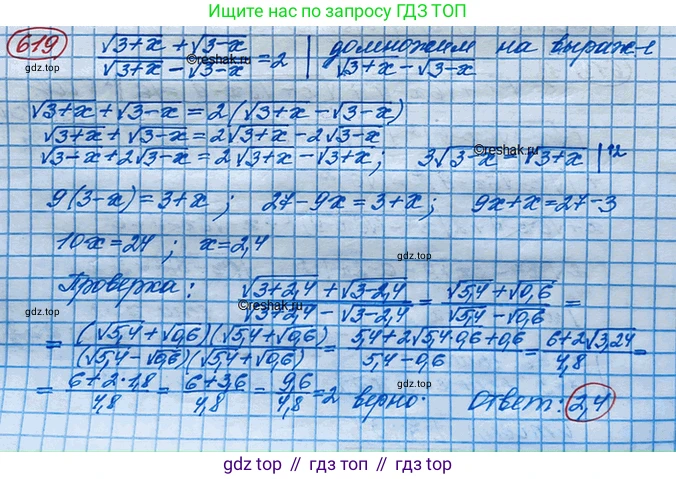 Ищите по запросу ГДЗ ТОП
619 (√(3+x) + √(3-x))/(√(3+x) - √(3-x)) = 2 | домножим на выраж-е
√(3+x) - √(3-x)
gdz.top
©reshak.ru
√(3+x) + √(3-x) = 2(√(3+x) - √(3-x))
√(3+x) + √(3-x) = 2√(3+x) - 2√(3-x)
√(3-x) + 2√(3-x) = 2√(3+x) - √(3+x); 3√(3-x) = √(3+x) |^2
©reshak.ru
9(3-x) = 3+x; 27-9x = 3+x; 9x+x = 27-3
gdz.top
10x = 24; x = 2,4
gdz.top
Проверка: (√(3+2,4) + √(3-2,4))/(√(3+2,4) - √(3-2,4)) = (√5,4 + √0,6)/(√5,4 - √0,6) =
©reshak.ru
gdz.top
= ((√5,4 + √0,6)(√5,4 + √0,6))/((√5,4 - √0,6)(√5,4 + √0,6)) = (5,4 + 2√(5,4·0,6) + 0,6)/(5,4 - 0,6) = (6+2√3,24)/4,8 =
= (6+2·1,8)/4,8 = (6+3,6)/4,8 = 9,6/4,8 = 2 верно. Ответ: 2,4
gdz.top
gdz.top // гдз топ // gdz.top